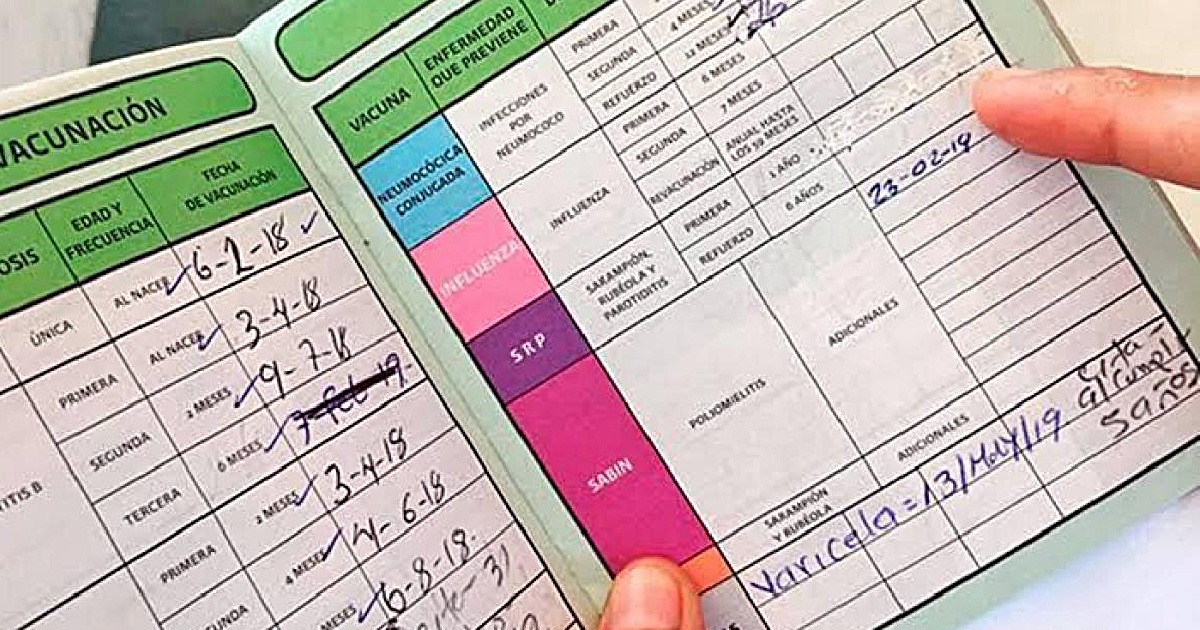 VACUNACIÓN
OSIS
EDAD Y
FRECUENCIA
FECHA
DE VACUNACIÓN
ÚNICA
AL NACER
6-2-18
PRIMERA
AL NACER
3-4-18
SEGUNDA
2 MESES
9-7-18
TITIS B
TERCERA
6 MESES
PRIMERA
2 MESES
3-4-18
UNDA
4 MESES
4-6-18
MESES
6-8-18
VACUNA
ENFERMEDAD
QUE PREVIENE
NEUMOCÓCICA
CONJUGADA
INFECCIONES
POR
NEUMOCOCO
PRIMERA
4 MESES
SEGUNDA
12 MESES
REFUERZO
INFLUENZA
INFLUENZA
PRIMERA
6 MESES
SEGUNDA
7 MESES
REVACUNACIÓN
ANUAL HASTA
LOS 59 MESES
S R P
SARAMPIÓN,
RUBÉOLA Y
PAROTIDITIS
PRIMERA
1 AÑO
REFUERZO
6 AÑOS
SABIN
POLIOMIELITIS
ADICIONALES
23-02-19
SARAMPIÓN
Y RUBÉOLA
ADICIONALES
Varicela = 13/May/19
5 años